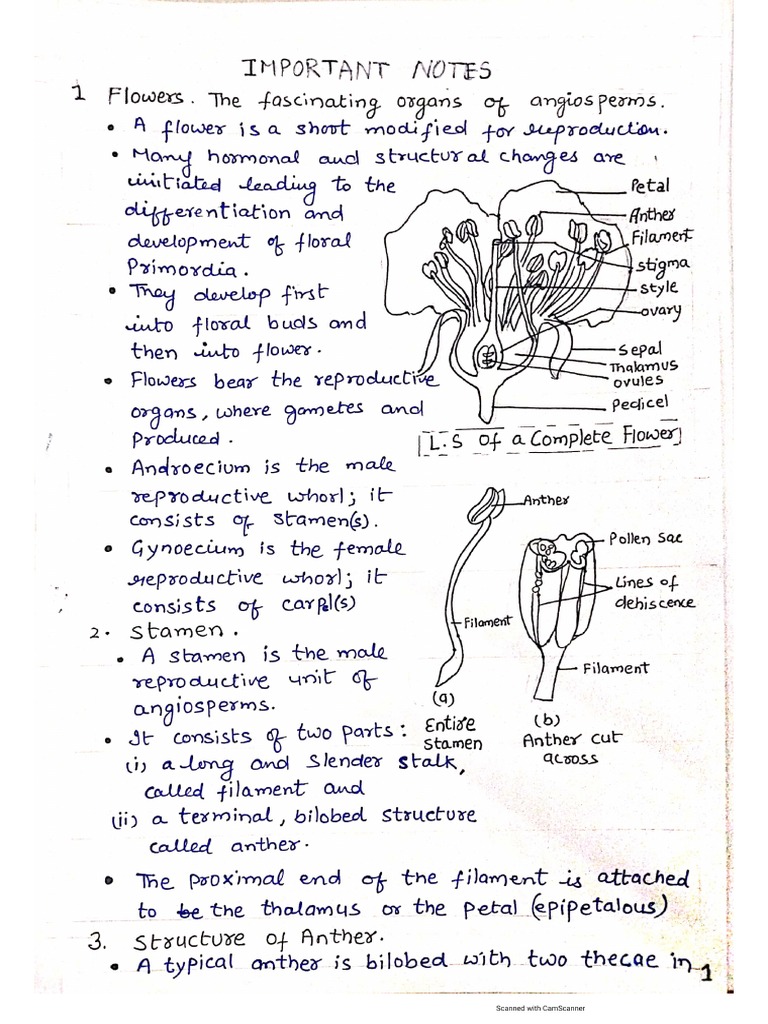 IMPORTANT NOTES
1 Flowers. The fascinating organs of angiosperms.
• A flower is a shoot modified for reproduction.
• Many hormonal and structural changes are
initiated leading to the
differentiation and
development of floral
Primordia.
• They develop first
into floral buds and
then into flower.
• Flowers bear the reproductive
organs, where gametes and
produced.
• Androecium is the male
reproductive whorl; it
consists of stamen(s).
• Gynoecium is the female
reproductive whorl; it
consists of carpel(s)
Petal
Anther
Filament
stigma
style
ovary
Sepal
Thalamus
ovules
Pedicel
L.S of a Complete Flower
Anther
Filament
(a)
Entire
stamen
Pollen sac
Lines of
dehiscence
Filament
(b)
Anther cut
across
2. Stamen.
• A stamen is the male
reproductive unit of
angiosperms.
• It consists of two parts:
(i) a long and slender stalk,
called filament and
(ii) a terminal, bilobed structure
called anther.
• The proximal end of the filament is attached
to be the thalamus or the petal (epipetalous)
3. Structure of Anther.
• A typical anther is bilobed with two thecae in
1
Scanned with CamScanner